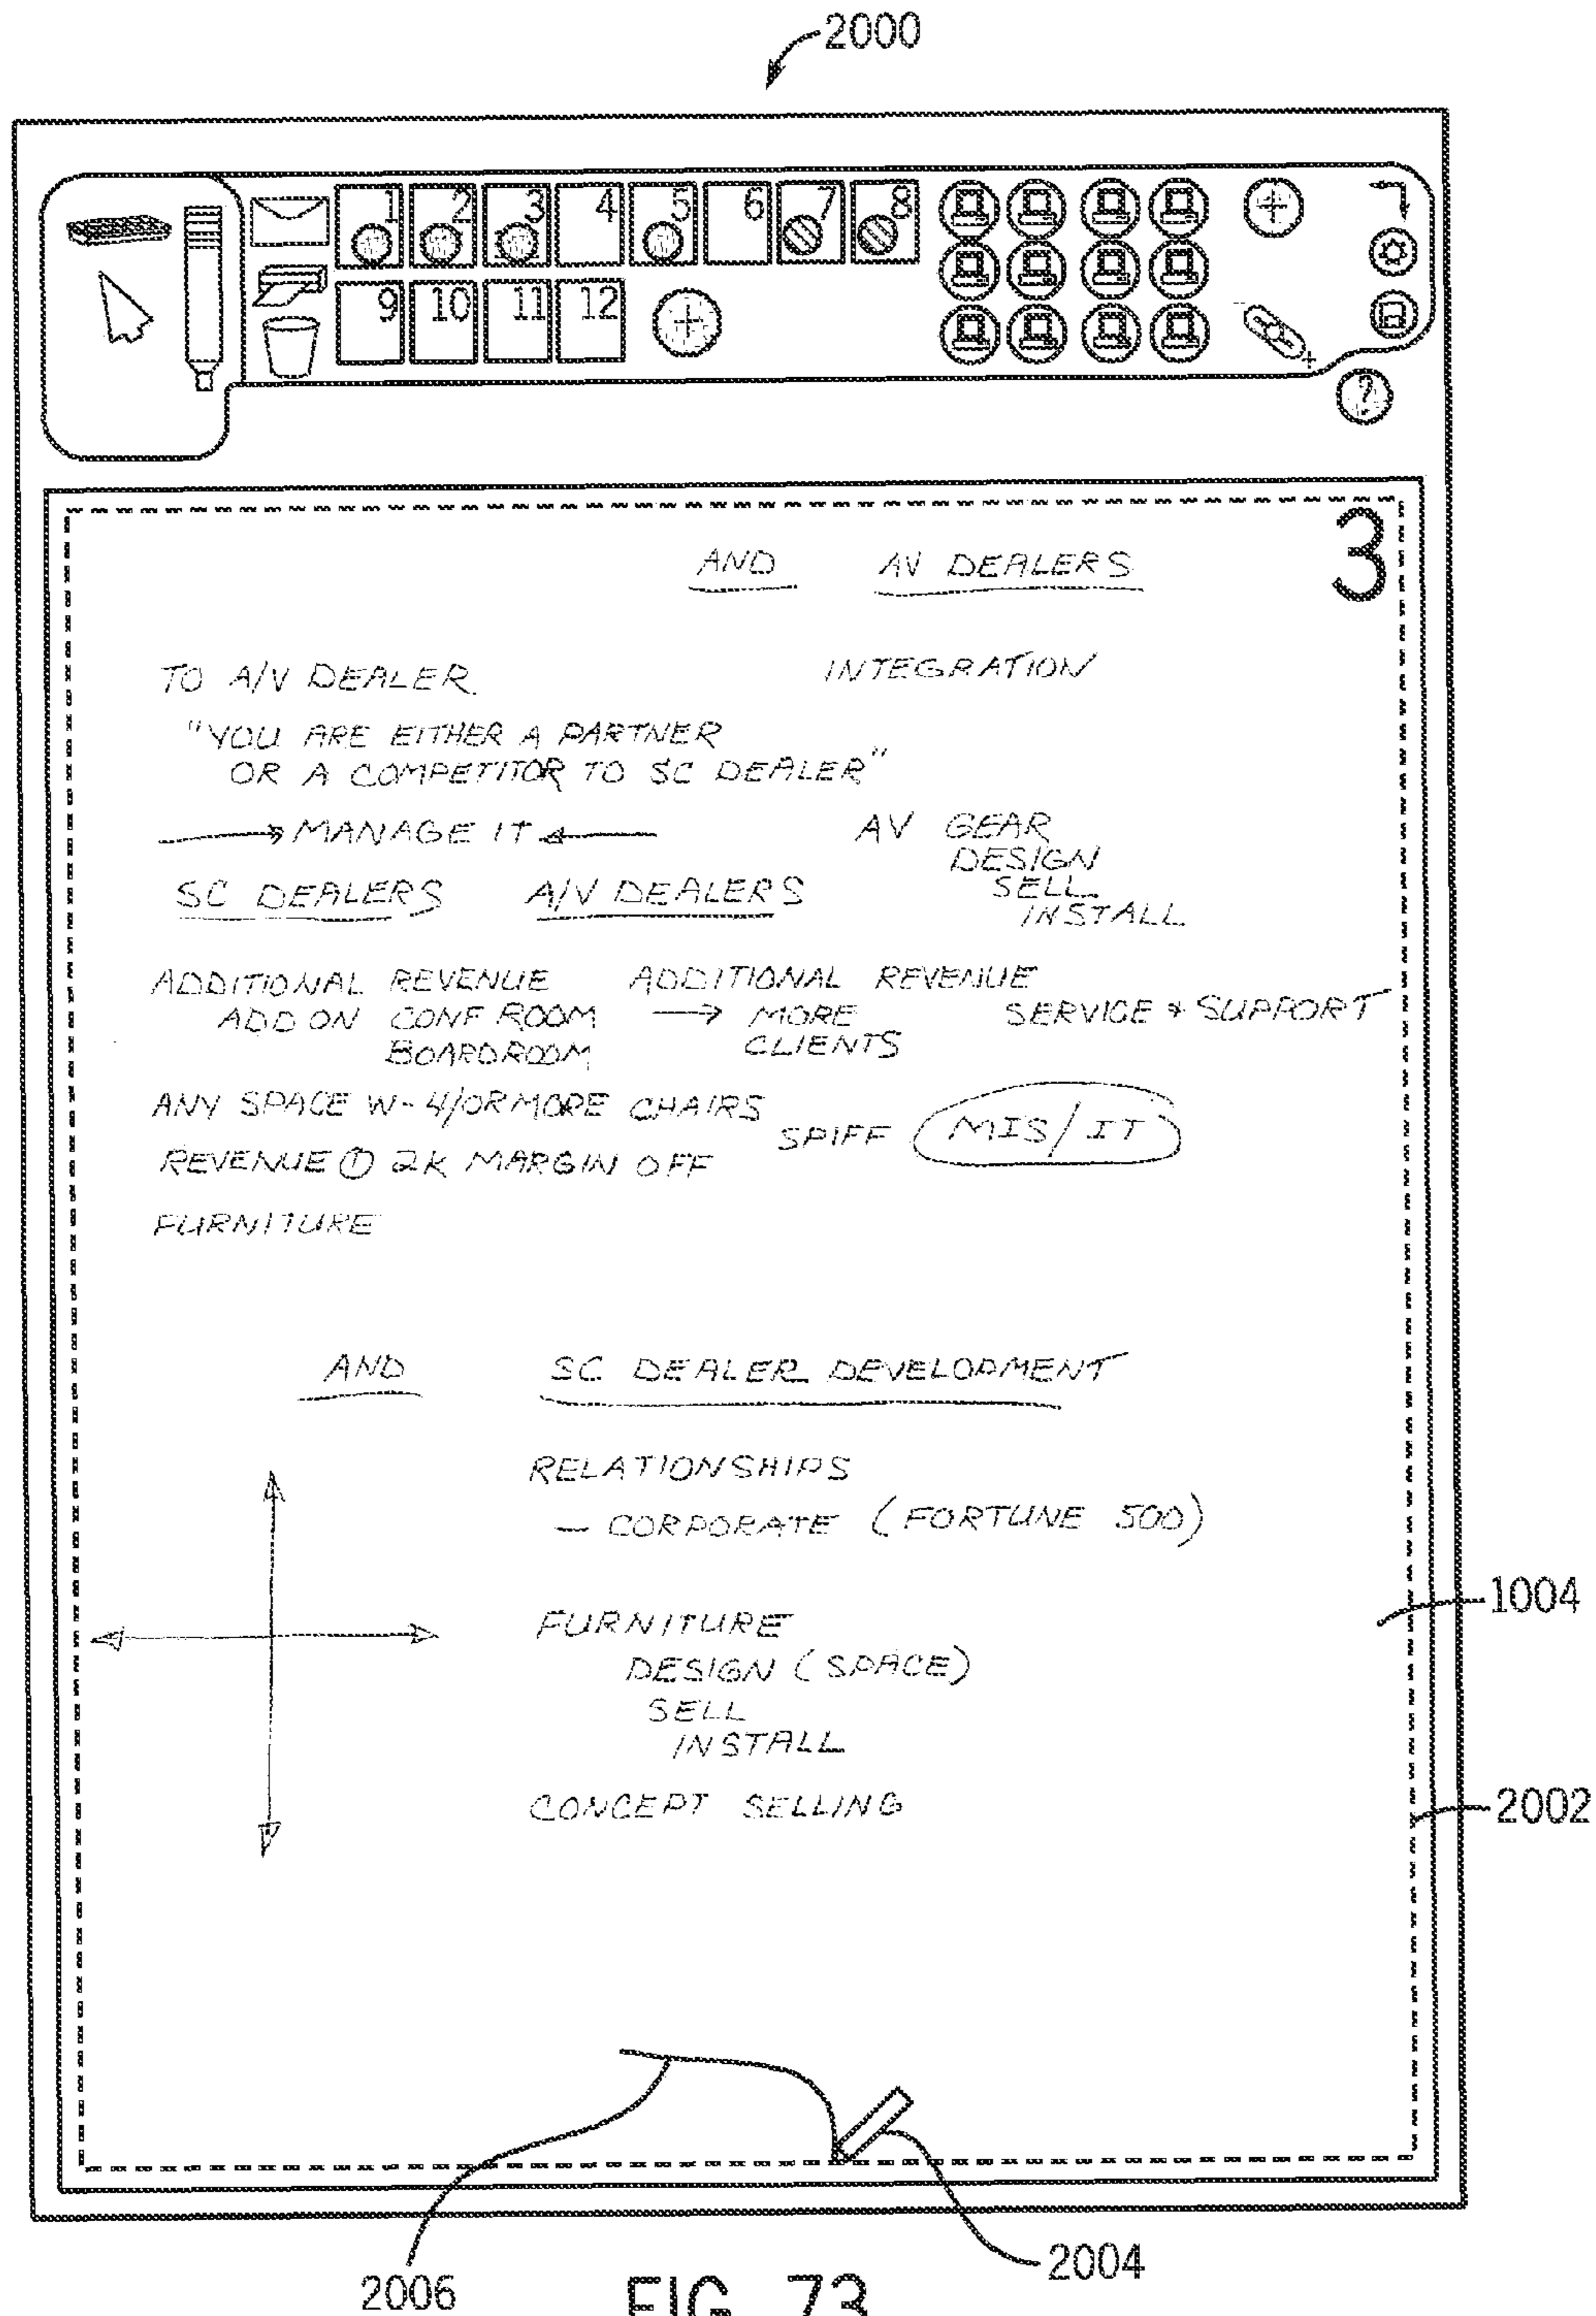 2000
1 2 3 4 5 6 7 8
9 10 11 12
?
3
AND AV DEALERS
TO A/V DEALER INTEGRATION
"YOU ARE EITHER A PARTNER
OR A COMPETITOR TO SC DEALER"
→ MANAGE IT ← AV GEAR
DESIGN
SC DEALERS A/V DEALERS SELL
INSTALL
ADDITIONAL REVENUE ADDITIONAL REVENUE
ADD ON CONF ROOM → MORE SERVICE + SUPPORT
BOARDROOM CLIENTS
ANY SPACE W- 4/OR MORE CHAIRS
SPIFF MIS/IT
REVENUE ① 2K MARGIN OFF
FURNITURE
AND SC DEALER DEVELOPMENT
RELATIONSHIPS
— CORPORATE (FORTUNE 500)
1004
FURNITURE
DESIGN (SPACE)
SELL
INSTALL
CONCEPT SELLING
2002
2004
2006
FIG. 73